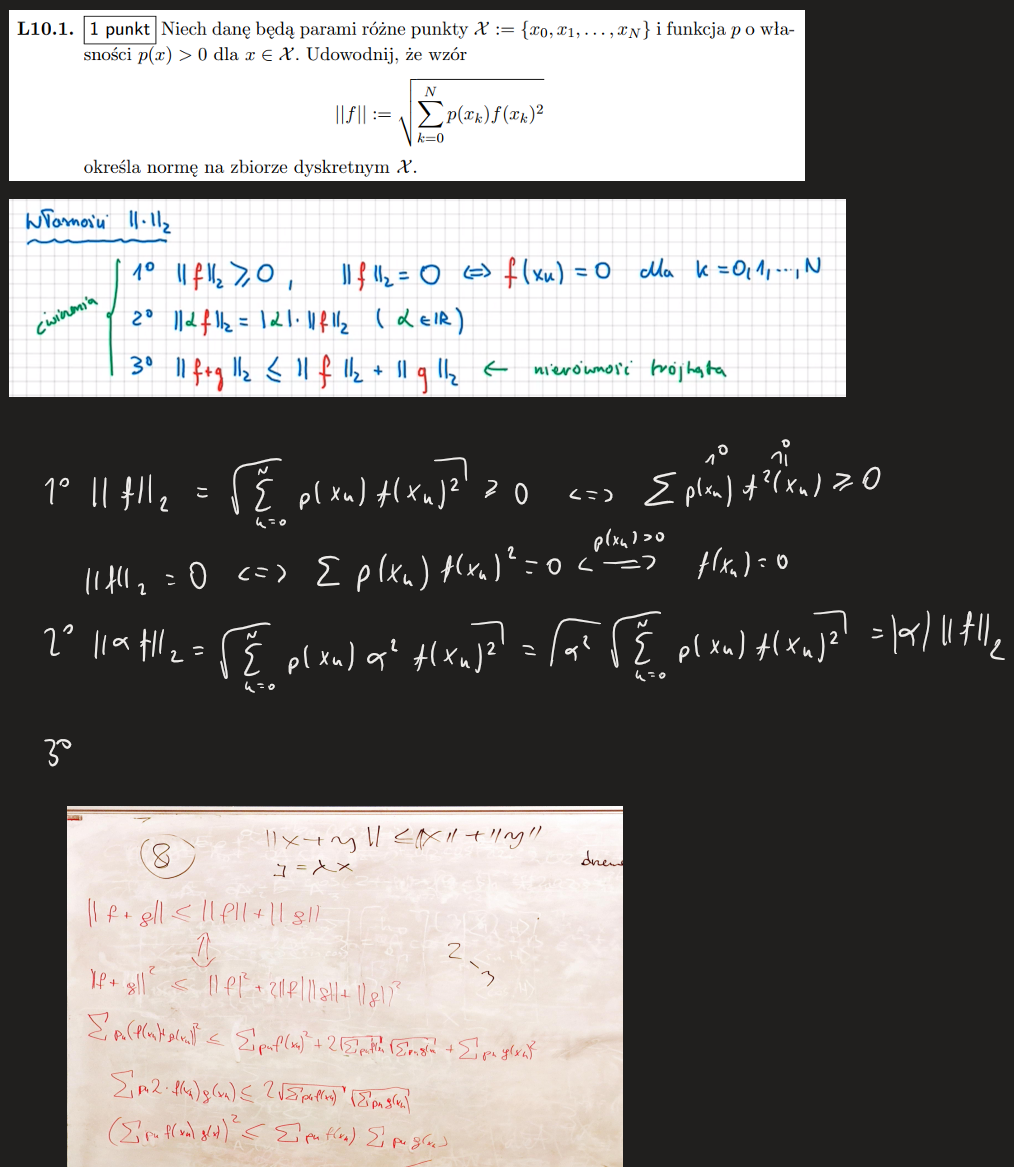 L10.1. 1 punkt Niech danę będą parami różne punkty 𝒳 := {x₀, x₁, . . . , x_N} i funkcja p o wła-
sności p(x) > 0 dla x ∈ 𝒳. Udowodnij, że wzór
||f|| := √(∑_{k=0}^{N} p(x_k)f(x_k)²)
określa normę na zbiorze dyskretnym 𝒳.
Własności ||·||₂
ćwiczenia
1° ||f||₂ ⩾ 0, ||f||₂ = 0 ⟺ f(x_k) = 0 dla k = 0,1,...,N
2° ||αf||₂ = |α|·||f||₂ (α ∈ ℝ)
3° ||f+g||₂ ⩽ ||f||₂ + ||g||₂ ← nierówność trójkąta
1° ||f||₂ = √(∑_{k=0}^{N} p(x_k) f(x_k)²) ⩾ 0 <=> ∑ p(x_k) f²(x_k) ⩾ 0
||f||₂ = 0 <=> ∑ p(x_k) f(x_k)² = 0 <=> p(x_k)>0 f(x_k) = 0
2° ||αf||₂ = √(∑_{k=0}^{N} p(x_k) α² f(x_k)²) = √α² √(∑_{k=0}^{N} p(x_k) f(x_k)²) = |α| ||f||₂
3°
8 ||x+y|| ≤ ||x|| + ||y||
y = λx
||f + g|| ≤ ||f|| + ||g||
⇕
||f + g||² ≤ ||f||² + 2||f||||g|| + ||g||²
∑ p_k (f(x_k)+g(x_k))² ≤ ∑ p_k f(x_k)² + 2√∑ p_k f(x_k) √∑ p_k g(x_k) + ∑ p_k g(x_k)²
∑ p_k 2·f(x_k)g(x_k) ≤ 2√∑ p_k f(x_k) √∑ p_k g(x_k)
(∑ p_k f(x_k) g(x))² ≤ ∑ p_k f(x_k) ∑ p_k g(x_k)